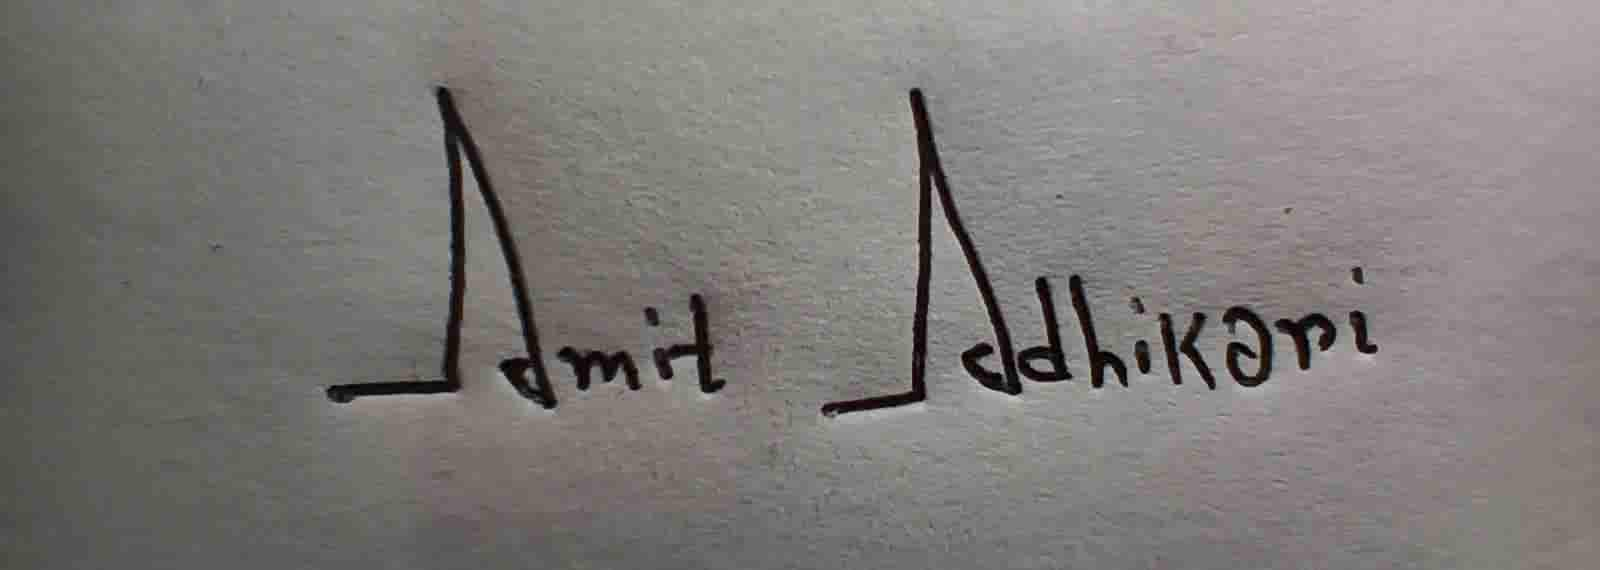 Amit Adhikari